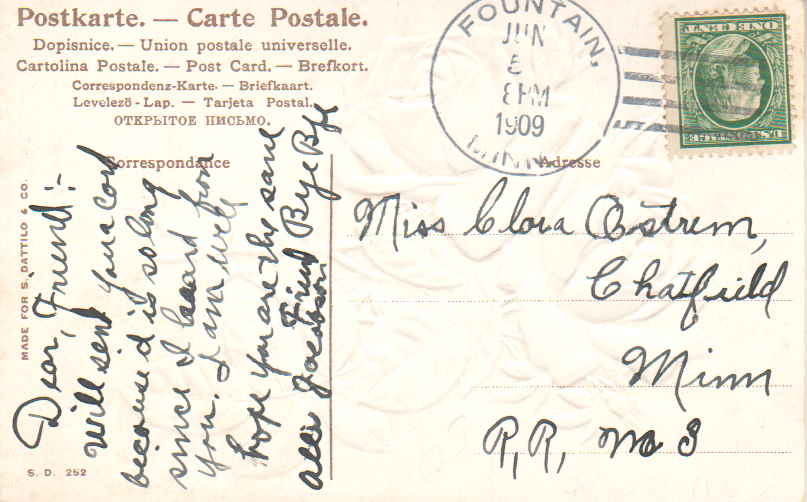 Postkarte. — Carte Postale.
Dopisnice. — Union postale universelle.
Cartolina Postale. — Post Card. — Brefkort.
Correspondenz-Karte. — Briefkaart.
Levelező-Lap. — Tarjeta Postal.
ОТКРЫТОЕ ПИСЬМО.
Correspondance
Adresse
FOUNTAIN,
JUN
5
8 PM
1909
MINN.
ONE CENT
MADE FOR S. DATTILO & CO.
S. D. 252
Dear, Friend:-
Will send you a card
because it is so long
since I heard from
you. I am well
hope you are the same
Friend Bye Bye
Jacobson
Miss Clara Ostrem,
Chatfield
Minn
R, R, No 3